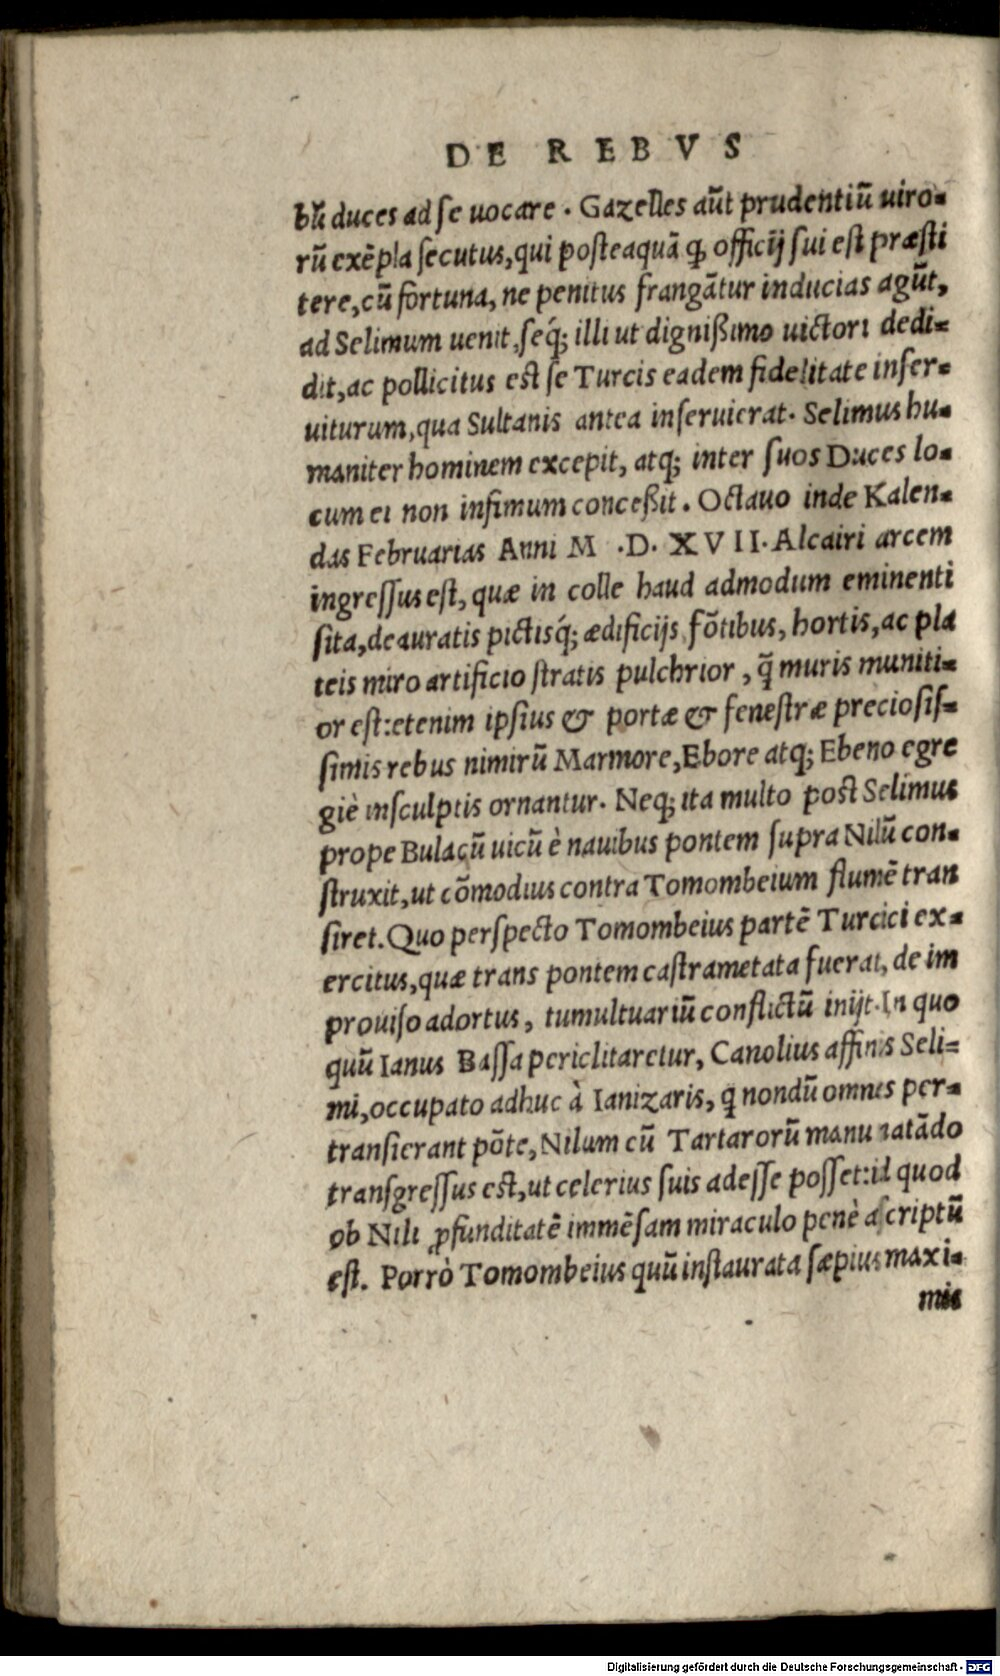 DE REBVS
bũ duces ad ſe uocare . Gazelles aũt prudentiũ uiro-
rũ exẽpla ſecutus, qui poſteaquã ꝗ officij ſui eſt præſti
tere, cũ fortuna, ne penitus frangãtur inducias agũt,
ad Selimum uenit, ſeq́; illi ut digniſsimo uictori dedi-
dit, ac pollicitus eſt ſe Turcis eadem fidelitate inſer-
uiturum, qua Sultanis antea inſeruierat. Selimus hu-
maniter hominem excepit, atq; inter ſuos Duces lo-
cum ei non infimum conceßit . Octauo inde Kalen-
das Februarias Anni M .D. XVII. Alcairi arcem
ingreſſus eſt, quæ in colle haud admodum eminenti
ſita, deauratis pictisq́; ædificijs fõtibus, hortis, ac pla
teis miro artificio ſtratis pulchrior , q̃ muris muniti-
or eſt: etenim ipſius & portæ & feneſtræ precioſiſ-
ſimis rebus nimirũ Marmore, Ebore atq; Ebeno egre
giè inſculptis ornantur. Neq; ita multo poſt Selimus
prope Bulacũ uicũ è nauibus pontem ſupra Nilũ con-
ſtruxit, ut cõmodius contra Tomombeium flumẽ tran
ſiret. Quo perſpecto Tomombeius partẽ Turcici ex-
ercitus, quæ trans pontem caſtrametata fuerat, de im
prouiſo adortus , tumultuariũ conflictũ inijt. In quo
quũ Ianus Baſſa periclitaretur, Canolius affinis Seli-
mi, occupato adhuc à Ianizaris, q̃ nondũ omnes per-
tranſierant põte, Nilum cũ Tartarorũ manu natãdo
tranſgreſſus eſt, ut celerius ſuis adeſſe poſſet: id quod
ob Nili ꝓfunditatẽ immẽſam miraculo penè aſcriptũ
eſt. Porrò Tomombeius quũ inſtaurata ſæpius maxi-
mis
Digitalisierung gefördert durch die Deutsche Forschungsgemeinschaft - DFG